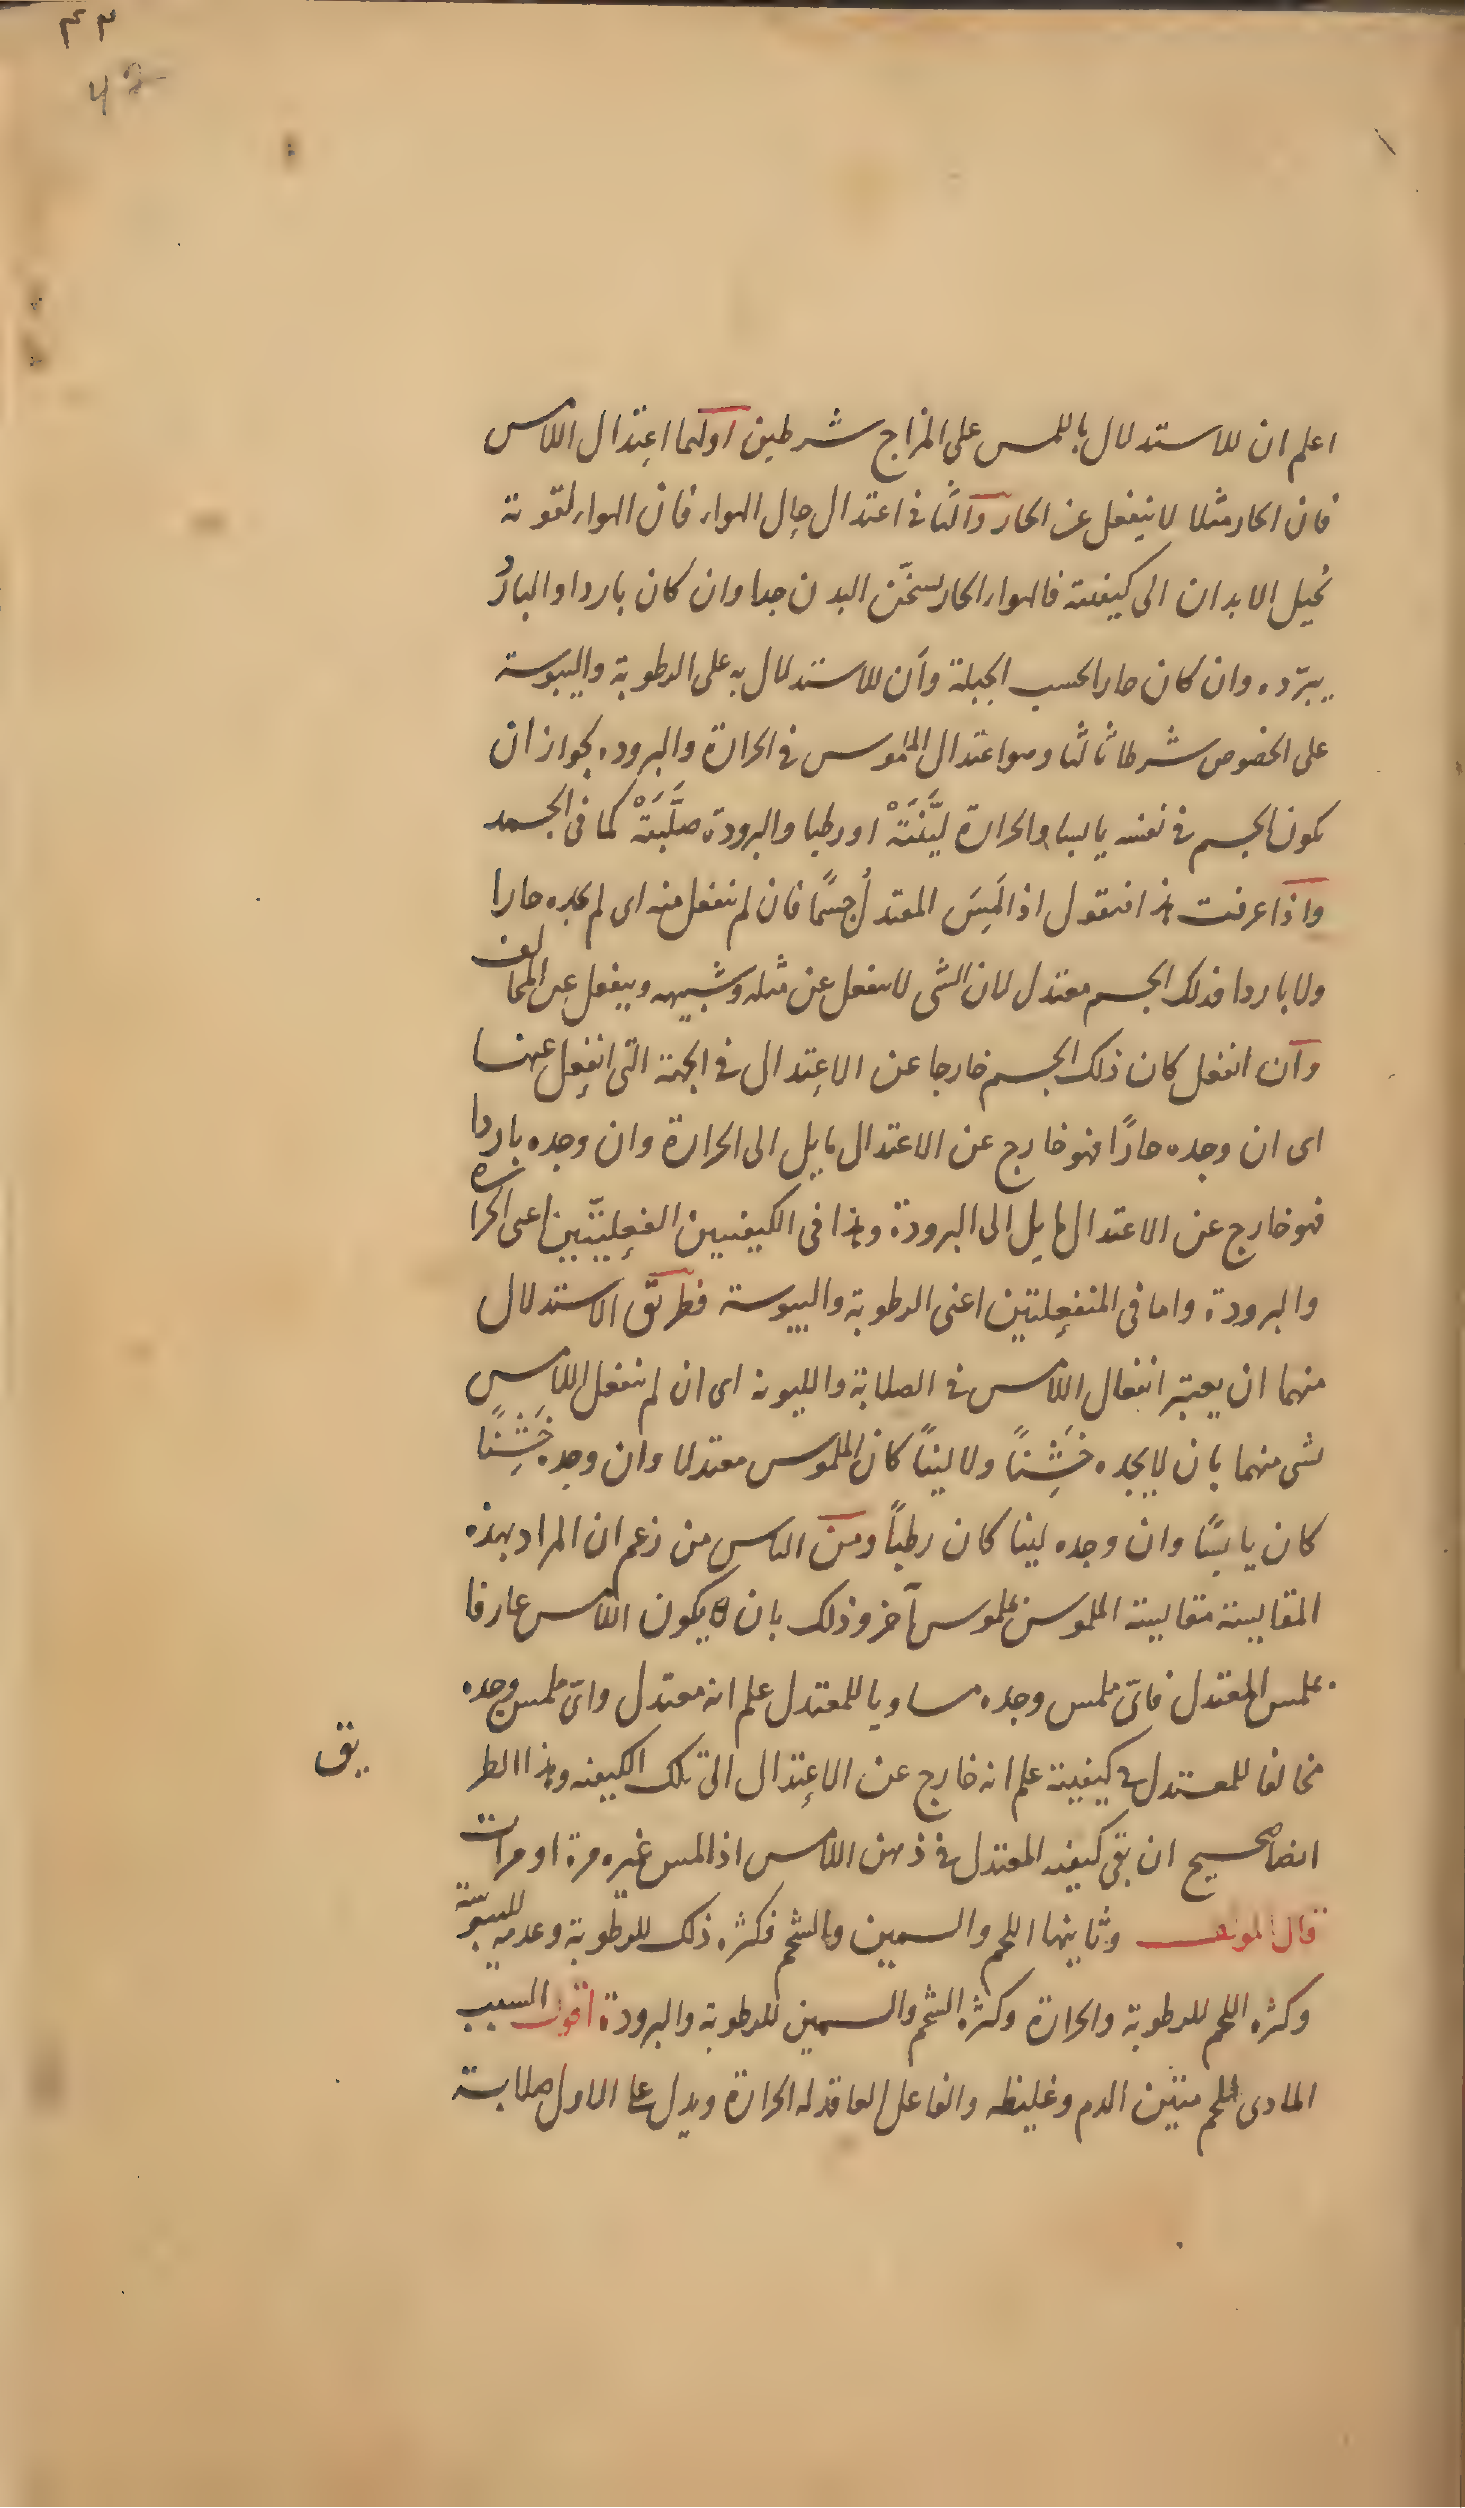 ٤٣
42
اعلم ان للاستدلال باللمس على المزاج شرطين اولهما اعتدال اللامس
فان الحار مثلا لا ينفعل عن الحار والثانى اعتدال حال الهواء فان الهواء لقوته
تحيل الابدان الى كيفيته فالهواء الحار يسخّن البدن جدا وان كان باردا والباردُ
يبرّده وان كان حارا بحسب الجبلة وان للاستدلال به على الرطوبة واليبوسة
على الخصوص شرطا ثالثا وهو اعتدال الملموس فى الحرارة والبرودة لجواز ان
يكون الجسم فى نفسه يابسا والحرارة لَيَّنَتْهُ او رطبا والبرودة صَلَّبَتْهُ كما فى الجمد
واذا عرفت هذا فنقول اذا لَمِسَ المعتدلُ جسمًا فان لم ينفعل منه اى لم يجده حارا
ولا باردا فذلك الجسم معتدل لان الشى لا ينفعل عن مثله وشبيهه وينفعل عن المخالف
وان انفعل كان ذلك الجسم خارجا عن الاعتدال فى الجهة التى انفعل عنها
اى ان وجده حارًا فهو خارج عن الاعتدال مايل الى الحرارة وان وجده باردا
فهو خارج عن الاعتدال مايل الى البرودة وهذا فى الكيفيتين الفعليتين اعنى الحرارة
والبرودة واما فى المنفعلتين اعنى الرطوبة واليبوسة فطريق الاستدلال
منهما ان يعتبر انفعال اللامس فى الصلابة والليونة اى ان لم ينفعل اللامس
لشى منهما بان لا يجده خَشِنًا ولا لينًا كان الملموس معتدلا وان وجده خَشِنًا
كان يابسًا وان وجده لينا كان رطبًا ومن الناس من زعم ان المراد بهذه
المقايسة مقايسة الملموس بملموس آخر وذلك بان يكون اللامس عارفا
بملمس المعتدل فاىّ ملمس وجده مساويا للمعتدل علم انه معتدل واىّ ملمس وجده
مخالفا للمعتدل فى كيفية علم انه خارج عن الاعتدال الى تلك الكيفية وهذا الطر
يق
ايضا صحيح ان بقى كيفية المعتدل فى ذهن اللامس اذا لمس غيره مرة او مرات
قال المولف وثانيها اللحم والسمين والشحم فكثرة ذلك للرطوبة وعدمه لليبوسة
وكثرة اللحم للرطوبة والحرارة وكثرة الشحم والسمين للرطوبة والبرودة اقول السبب
المادى للحم متين الدم وغليظه والفاعل العاقد له الحرارة ويدل على الاول صلابة